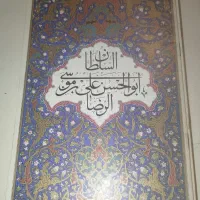 السلطان
ابوالحسن علی بن موسی
الرضا